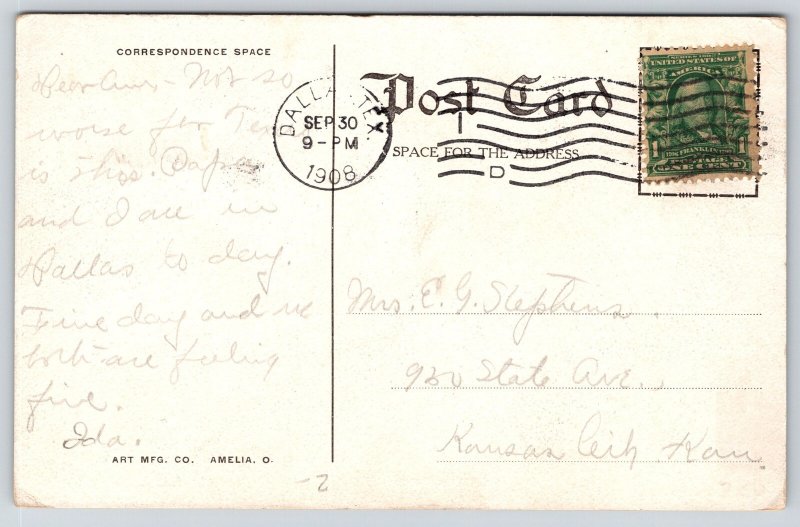 CORRESPONDENCE SPACE
Dear Ones - Not so
worse for Texas
is this. Papa
and I are in
Dallas to day.
Fine day and we
both are feeling
fine.
Ida.
ART MFG. CO. AMELIA, O.
Post Card
SPACE FOR THE ADDRESS
DALLAS, TEX.
SEP 30
9-PM
1908
D
SERIES 1902
UNITED STATES OF
AMERICA
1 FRANKLIN 1
POSTAGE
ONE CENT
Mrs. E. G. Stephens
930 State Ave.
Kansas City Kan
-2